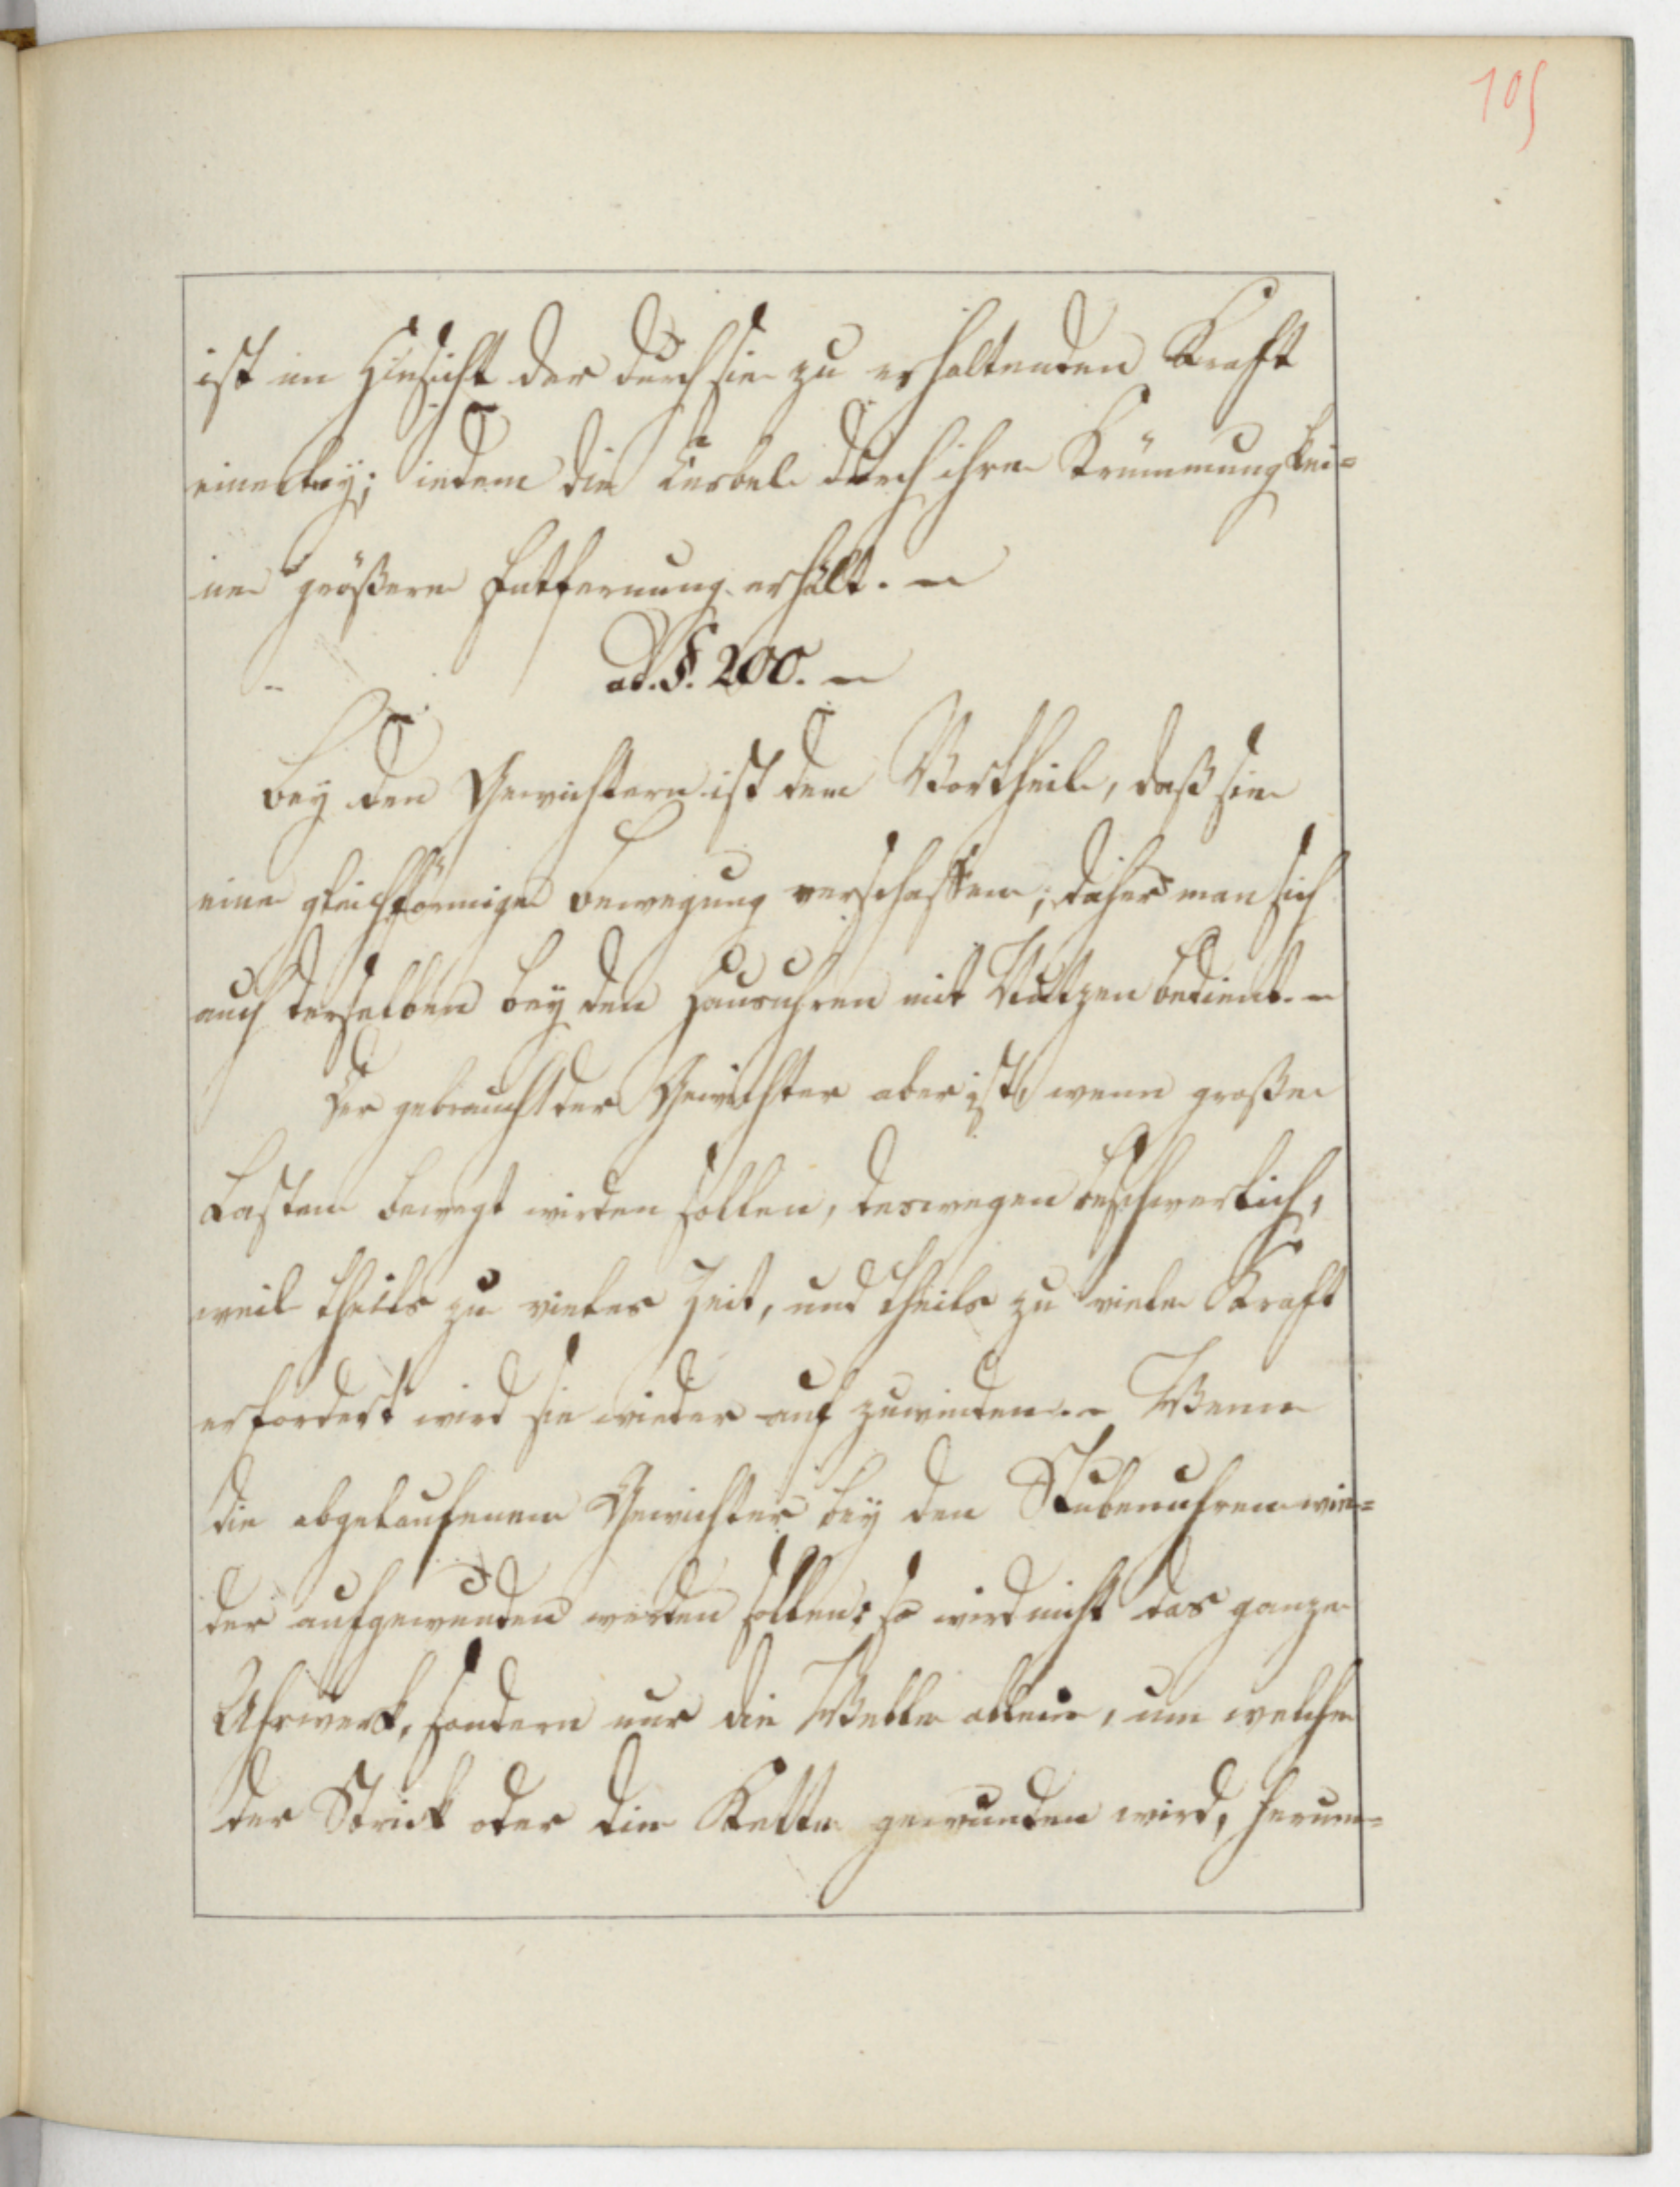 105
ist in Hinsicht der durch sie zu erhaltenden Kraft
einerley; indem die Kurbel durch ihre Krümmung kei=
ne größere Entfernung erhält. –
ad. §. 200. –
Bey den Gewichtern ist dem Vortheile, daß sie
eine gleichförmige Bewegung verschaffen; daher man sich
auch derselben bey den Hausuhren mit Nutzen bedient. –
Der gebraucht der Gewichter aber ist, wenn große
Lasten bewegt wirden sollen, deswegen beschwerlich,
weil theils zu vieles Zeit, und theils zu viele Kraft
erfordert wird sie wieder auf zuwinden. – Wenn
die abgelaufenen Gewichter bey den Stubenuhren wie=
der aufgewunden werden sollen: so wird nicht das ganze
Uhrwerk, sondern nur die Welle allein, um welche
der Strick oder die Kette gewunden wird, herum=